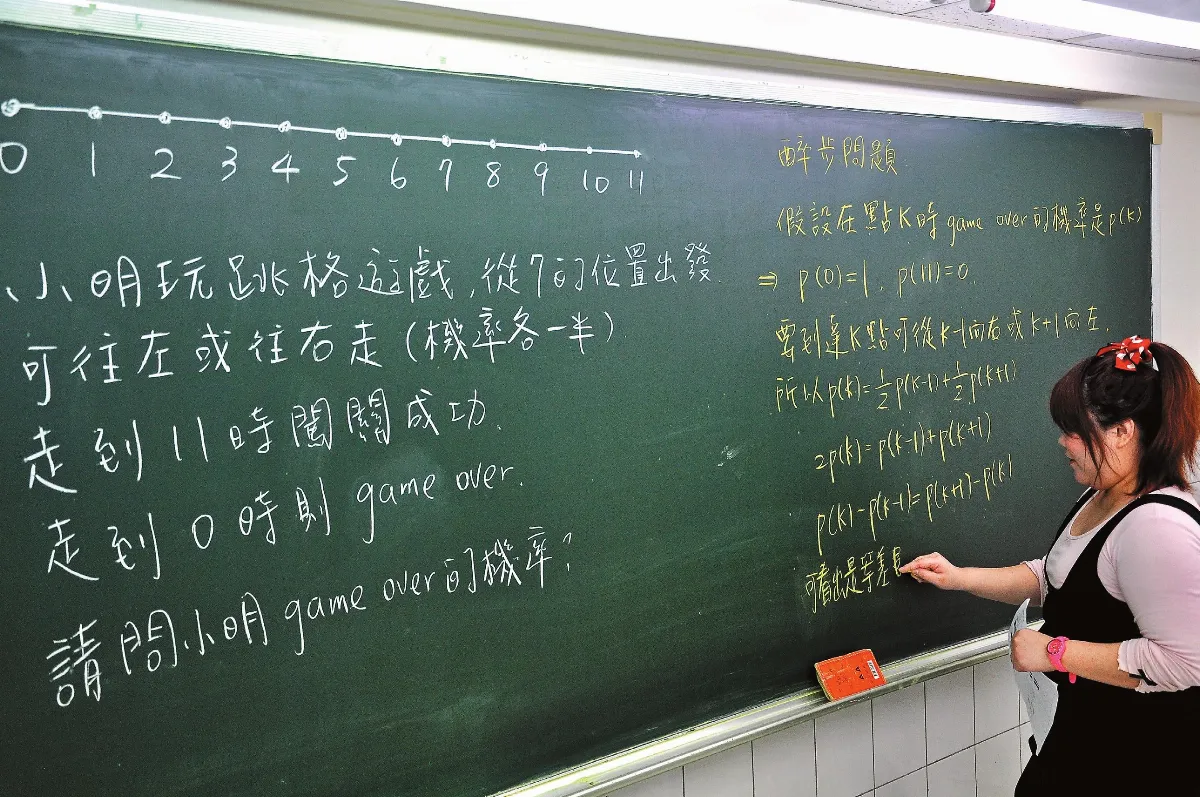 0 1 2 3 4 5 6 7 8 9 10 11
、小明玩跳格遊戲,從7的位置出發.
可往左或往右走(機率各一半)
走到11時闖關成功.
走到0時則game over.
請問小明game over的機率?
醉步問題
假設在點K時game over的機率是p(k)
⇒ p(0)=1, p(11)=0.
要到達K點可從k-1向右或k+1向左.
所以p(k)=1/2p(k-1)+1/2p(k+1)
2p(k)=p(k-1)+p(k+1)
p(k)-p(k-1)=p(k+1)-p(k)
可看出是等差